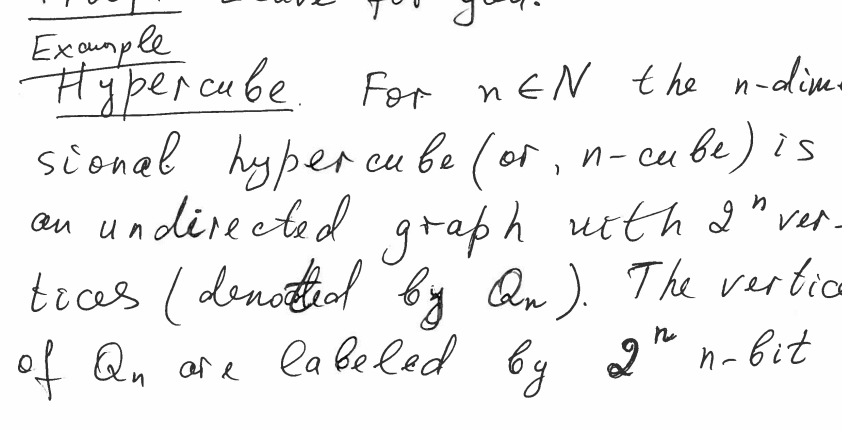 for you.
Example
Hypercube. For n ∈ N the n-dim
sional hypercube (or, n-cube) is
an undirected graph with 2^n ver-
tices (denoted by Qn). The vertic
of Qn are labeled by 2^n n-bit